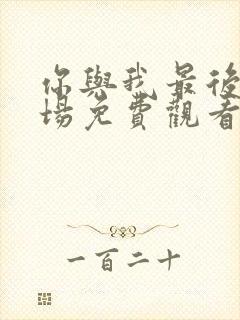 你與我最後
場免費觀看
一百二十